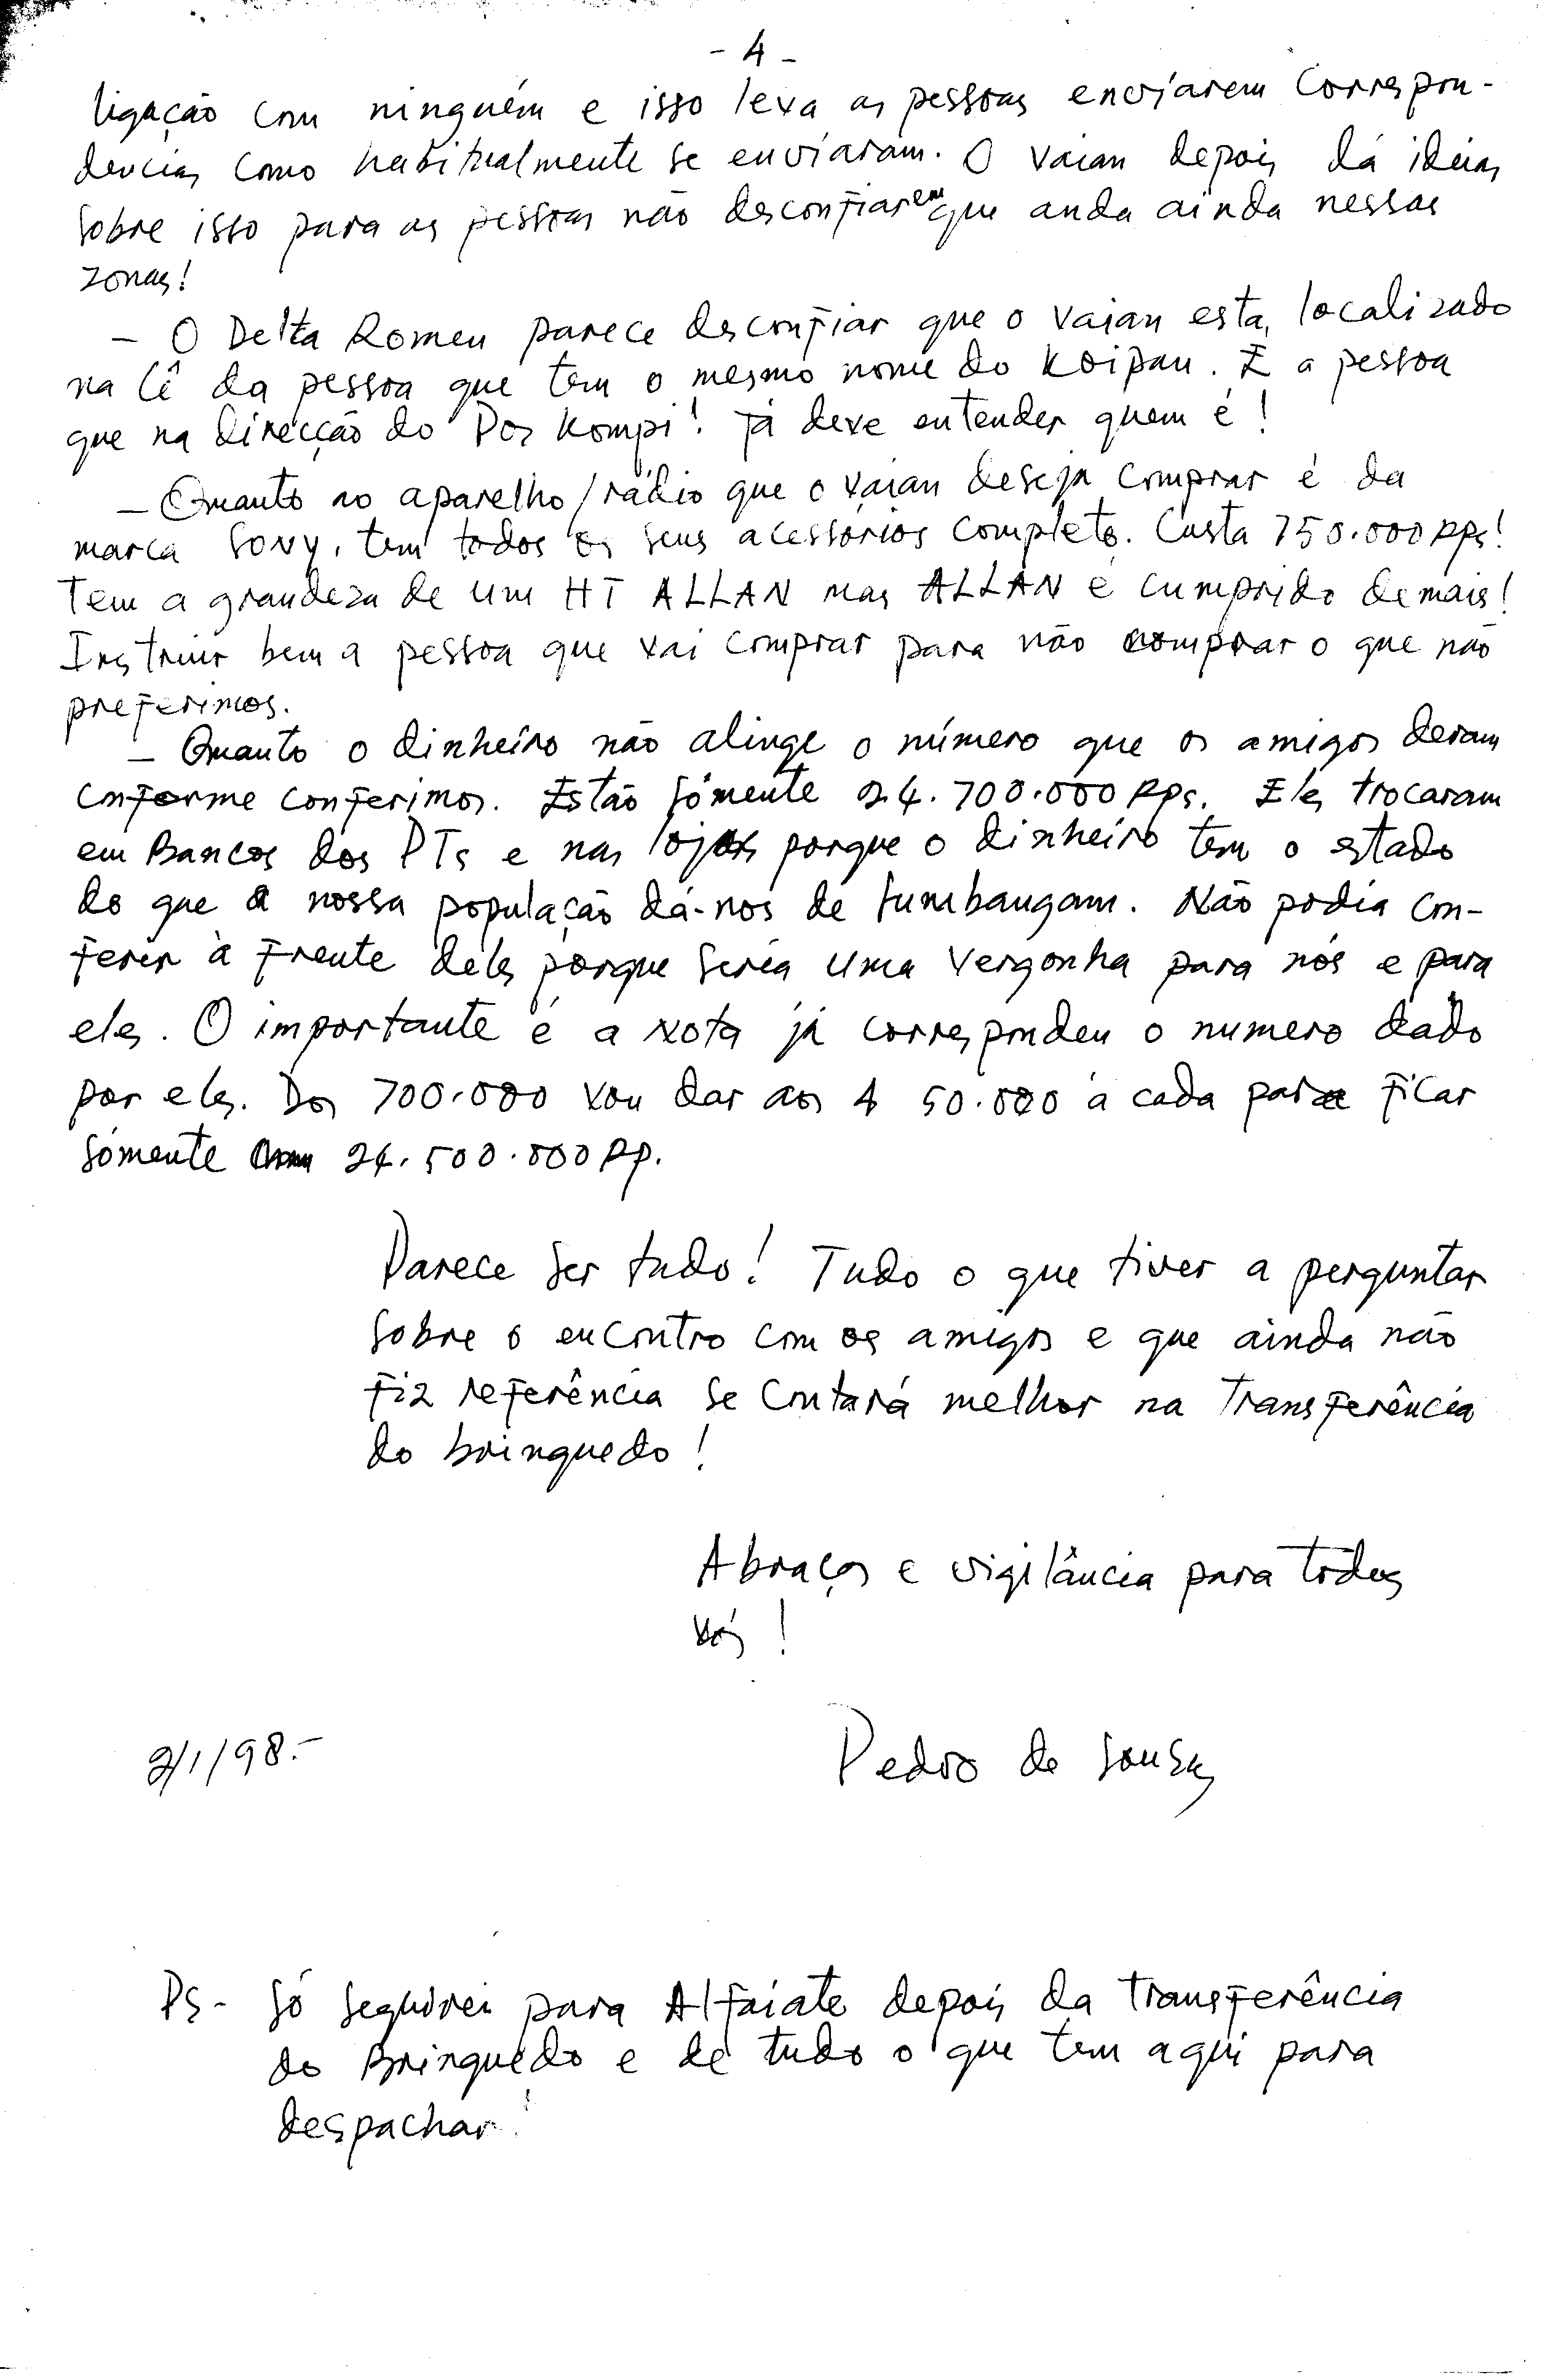 - 4 -
ligação com ninguém e isso leva as pessoas enviarem correspon-
dencias como habitualmente se enviaram. O Vaian depois dá ideias
sobre isso para as pessoas não desconfiarem que anda ainda nessas
zonas!
- O Delta Romeu parece desconfiar que o Vaian está localizado
na Cê da pessoa que tem o mesmo nome do Koipan. É a pessoa
que na direcção do Pos Kompi! Já deve entender quem é!
- Quanto ao aparelho/rádio que o Vaian deseja comprar é da
marca SONY, tem todos os seus acessórios completo. Custa 750.000 RPs!
Tem a grandeza de um HT ALLAN mas ALLAN é cumprido demais!
Instruir bem a pessoa que vai comprar para não comprar o que não
preferimos.
- Quanto o dinheiro não atinge o número que os amigos deram
conforme conferimos. Estão sómente 24.700.000 RPs. Eles trocaram
em Bancos dos PTs e nas lojas porque o dinheiro tem o estado
do que a nossa população dá-nos de Sumbangam. Não podia con-
ferir à frente deles porque seria uma vergonha para nós e para
eles. O importante é a nota já correspondeu o numero dado
por eles. Dos 700.000 vou dar aos 4 50.000 a cada para ficar
sómente 24.500.000 RP.
Parece ser tudo! Tudo o que tiver a perguntar
sobre o encontro com os amigos e que ainda não
fiz referência se contará melhor na transferência
do brinquedo!
Abraços e vigilância para todos
vós!
2/1/98.-
Pedro de Sousa
Ps- Só seguirei para Alfaiate depois da transferência
do Brinquedo e de tudo o que tem aqui para
despachar!